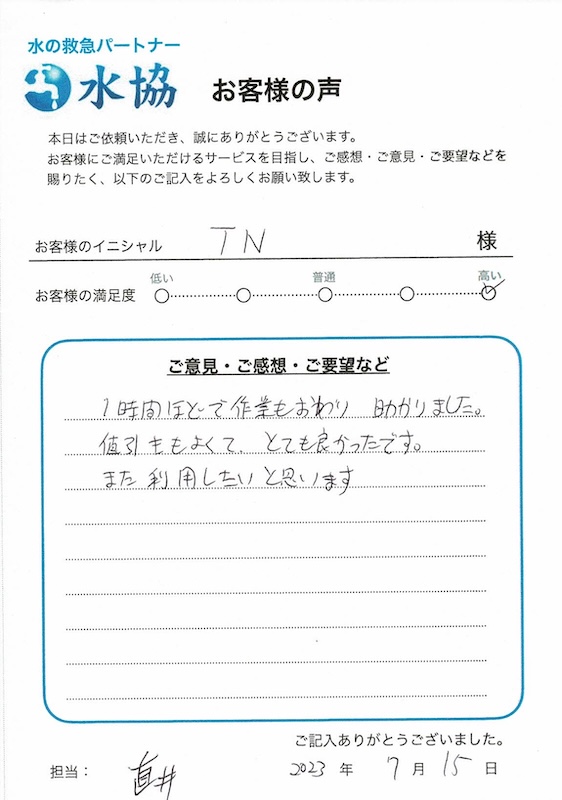 水の救急パートナー
水協 お客様の声
本日はご依頼いただき、誠にありがとうございます。
お客様にご満足いただけるサービスを目指し、ご感想・ご意見・ご要望などを
賜りたく、以下のご記入をよろしくお願い致します。
お客様のイニシャル TN 様
低い 普通 高い
お客様の満足度
ご意見・ご感想・ご要望など
1時間ほどで作業もおわり 助かりました。
値引きもよくて、とても良かったです。
また利用したいと思います
ご記入ありがとうございました。
担当： 直井 2023 年 7 月 15 日